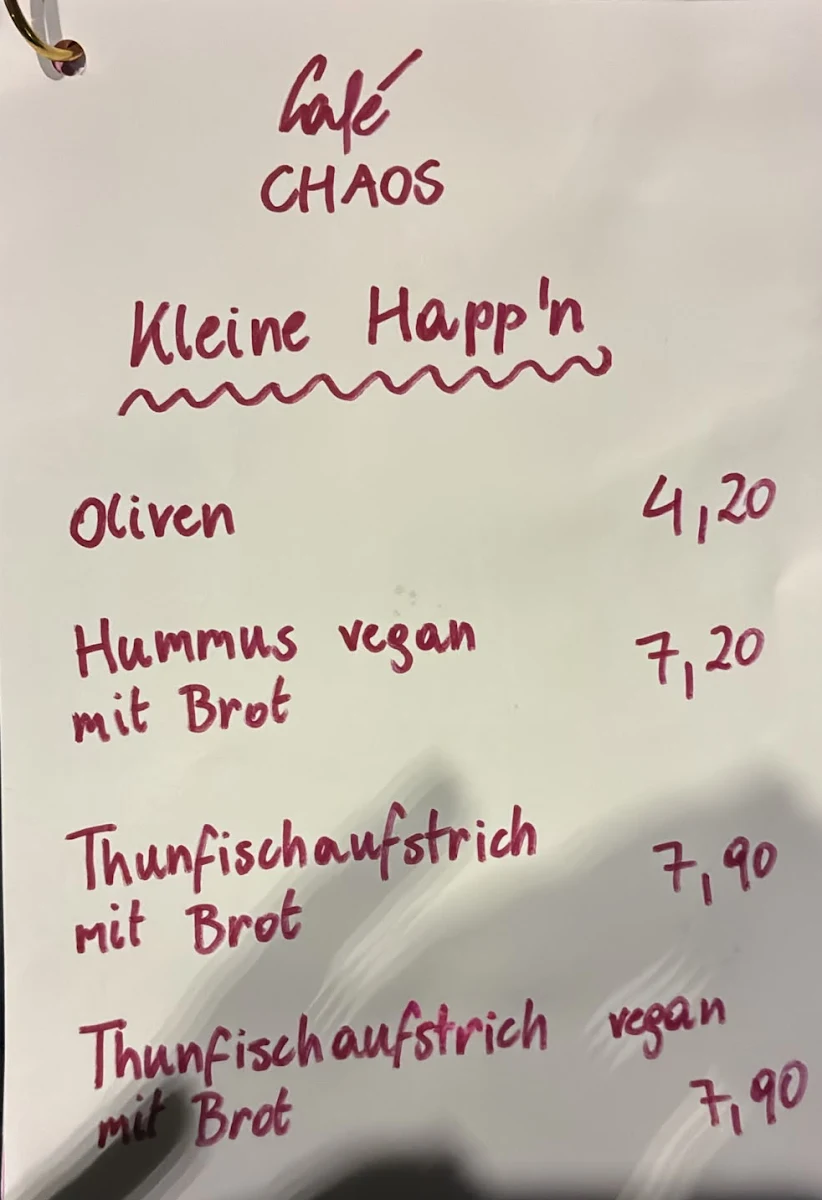 Café
CHAOS
Kleine Happ'n
Oliven 4,20
Hummus vegan 7,20
mit Brot
Thunfischaufstrich 7,90
mit Brot
Thunfischaufstrich vegan
mit Brot 7,90